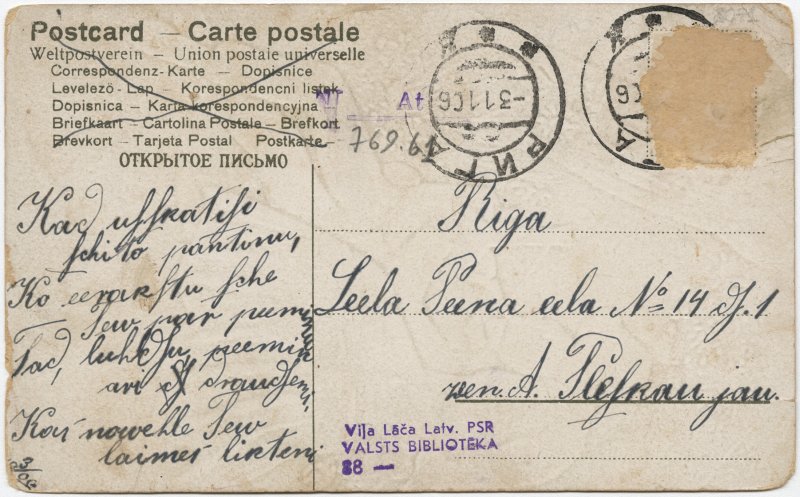 Postcard — Carte postale
Weltpostverein — Union postale universelle
Correspondenz-Karte — Dopisnice
Levelező-Lap — Korespondencni listek
Dopisnica — Karta korespondencyjna
Briefkaart — Cartolina Postale — Brefkort
Brevkort — Tarjeta Postal Postkarte
ОТКРЫТОЕ ПИСЬМО
At
769.69
РИГА
-3 1 1 06
06
Kad usskatisi
schito pantinu,
Ko eerakstu sche
Tew par peeminu
Tad, luhdsu, peemin
ari draudseni,
Kas nowehle Tew
laimes likteni
3/06
Riga
Leela Peena eela № 14 dz. 1
zen. A. Pleskau jau.
Viļa Lāča Latv. PSR
VALSTS BIBLIOTĒKA
88 —